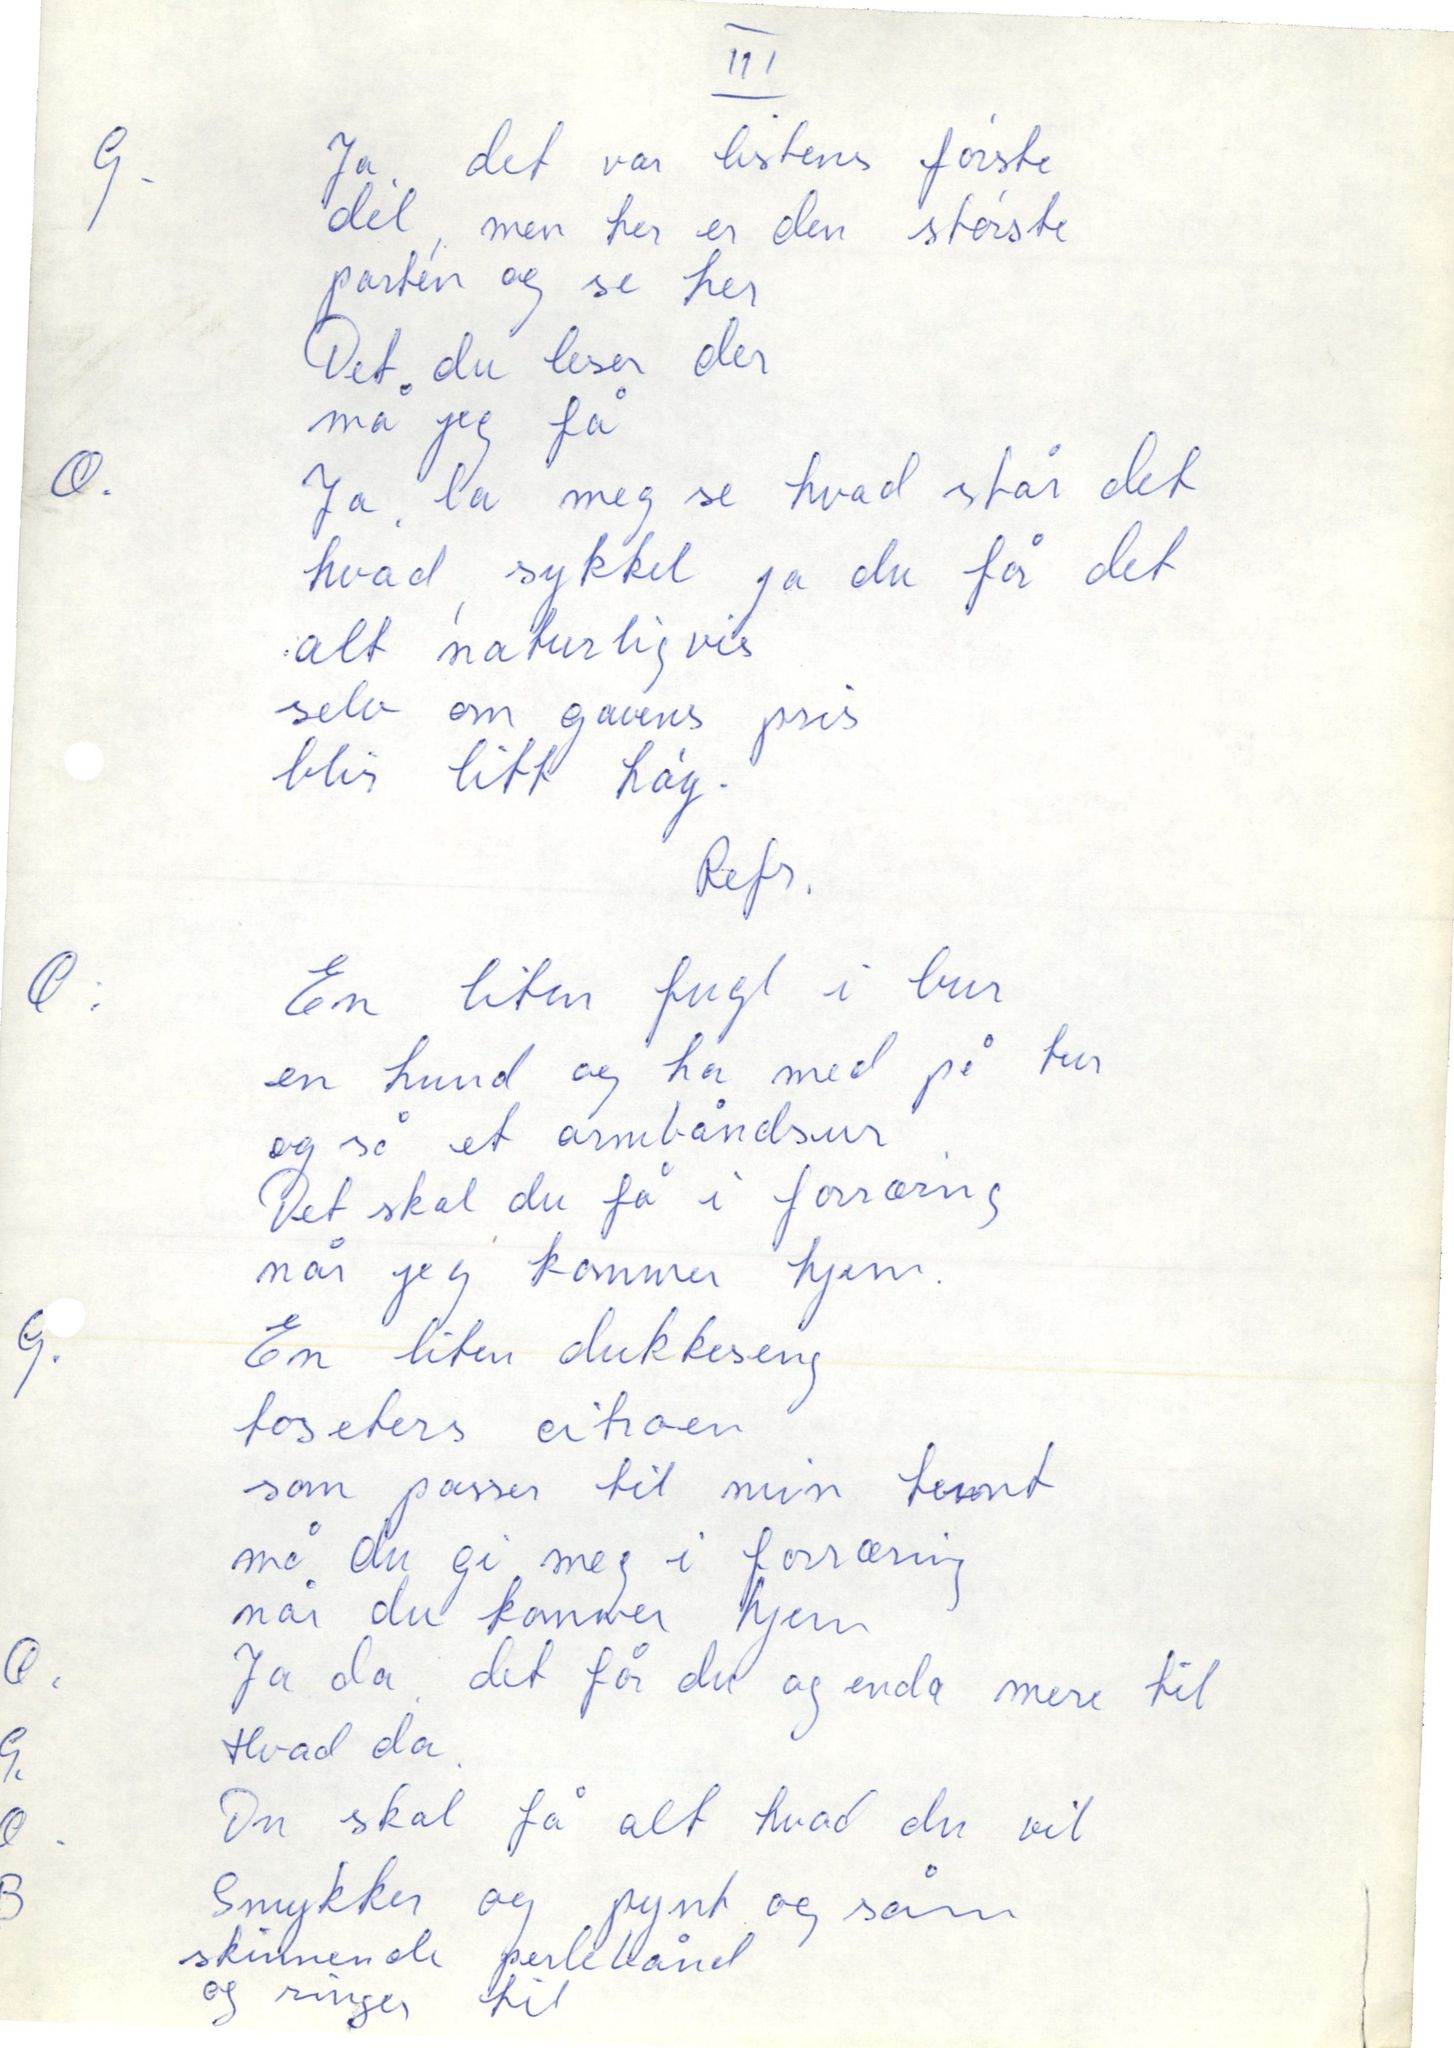 III
G. Ja, det var listens første
del, men her er den største
parten og se her
Det du leser der
må jeg få
O. Ja, la meg se hvad står det
hvad, sykkel ja du får det
alt naturligvis
selv om gavens pris
blir litt høg.
Refr.
O: En liten fugl i bur
en hund og ha med på tur
og så et armbåndsur
Det skal du få i forræring
når jeg kommer hjem.
G. En liten dukkeseng
toseters citroen
som passer til min
må du gi meg i forræring
når du kommer hjem
O. Ja da, det får du og enda mere til
G. Hvad da.
O. Du skal få alt hvad du vil
B Smykker og pynt og sånn
skinnende perlebånd
og ringer til